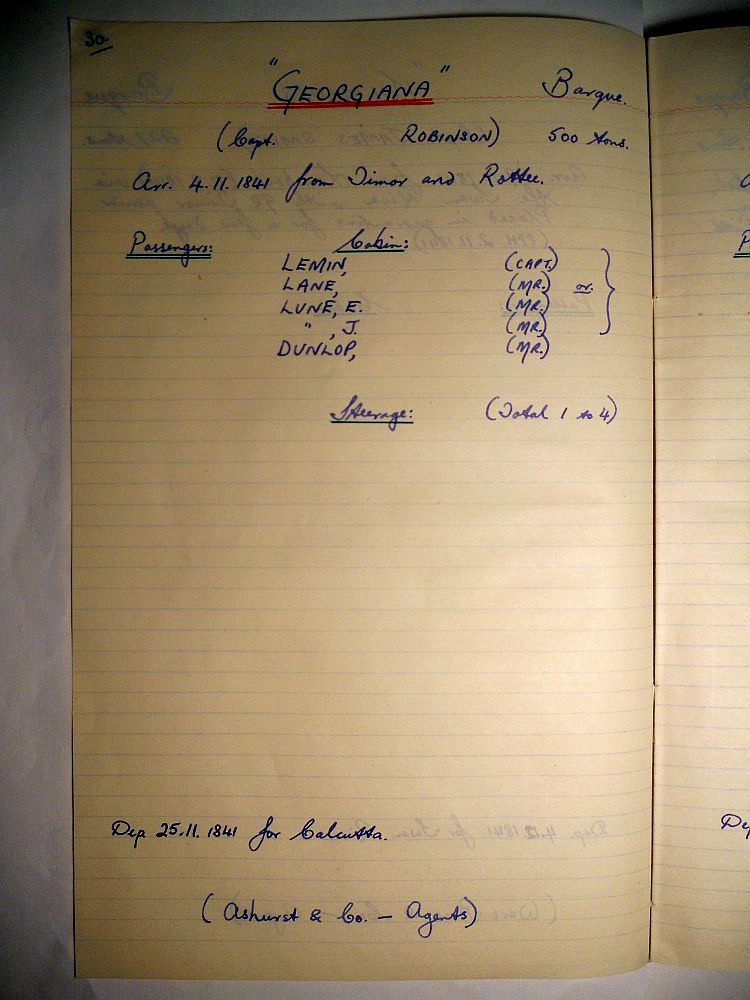 30
"GEORGIANA" Barque.
(Capt. ROBINSON) 500 tons.
Arr. 4.11.1841 from Timor and Rottee.
Passengers: Cabin:
LEMIN, (CAPT.)
LANE, (MR.) or
LUNE, E. (MR.)
" , J. (MR.)
DUNLOP, (MR.)
Steerage: (Total 1 to 4)
Dep 25.11.1841 for Calcutta.
(Ashurst & Co. — Agents)
P
Dep